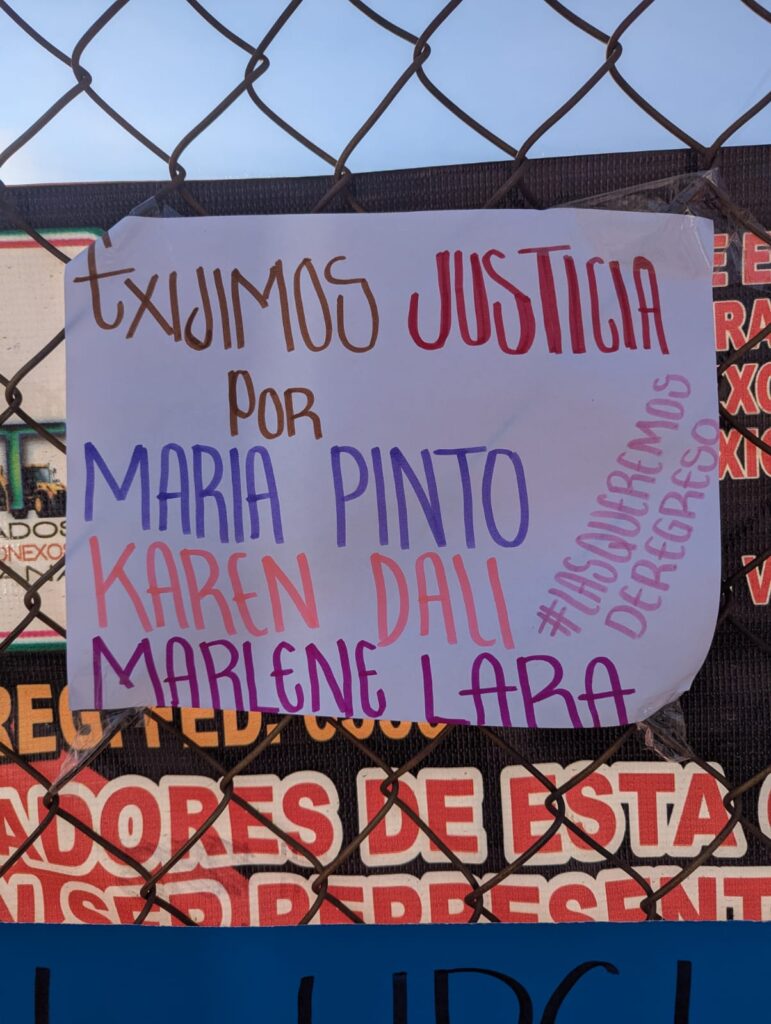 EXIJIMOS JUSTICIA
POR
MARIA PINTO
KAREN DALI
MARLENE LARA
#LASQUEREMOS
DEREGRESO
ADOS
ONEXOS
ANA
E E
RA
XO
XI
V
REG. FED.
ADORES DE ESTA
N SER REPRESENT